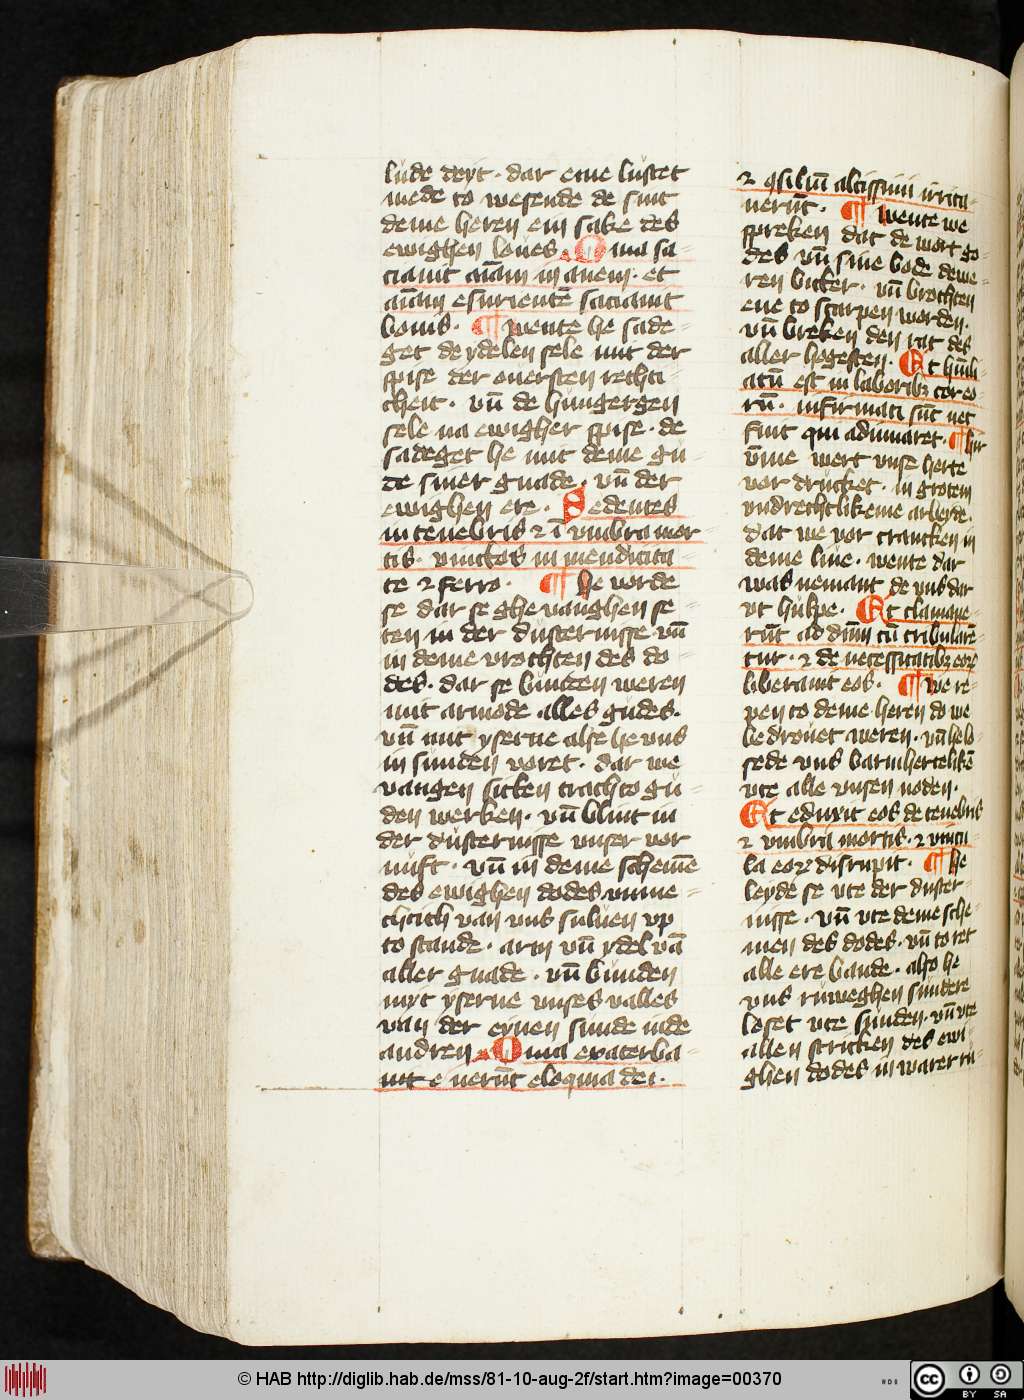 lude deyt · dar eme lustet
mede to wesende de sint
deme heren ein sake des
ewighen leues Quia sa
ciauit aīam inanem · et
aīam esurientē saciauit
bonis · ¶ wente he sade
get de ydelen sele mit der
spise der ouersten rechti
cheit · vn̄ de hungergen
sele na ewigher spise · de
sadeget he mit deme gu
de siner gnade · vn̄ der
ewighen ere · Sedentes
in tenebris ⁊ ī vmbra mor
tis · vinctos in mendicita
te ⁊ ferro · ¶ he vorde
se dar se ghe vanghen se
ten in der dusternisse vn̄
in deme vrochten des do
des · dar se bunden weren
mit armode alles gudes ·
vn̄ mit yserne alse he vns
in sunden voret · dar we
vangen sitten trach to gu
den werken · vn̄ blint in
der dusternisse vnser vor
nuft · vn̄ in deme schemē
des ewighen dodes vnme
chtich van vns suluen vp
to stande · arm vn̄ ydel vā
aller gnade · vn̄ bunden
myt yserne vnses valles
van der eynen sunde in de
andren Quia exacerba
uerūt eloquia dei ·
⁊ ↄsiliū altissimi irrita
uerūt · ¶ wente we
spreken dat de wort go
des vn̄ sine bode dewe
ren bitter · vn̄ brochten
ene to scarpen worden ·
vn̄ breken den rat des
aller hogesten · Et hūili
atū est in laboribꝫ cor eo
rū · infirmati sūt nec
fuit qui adiuuaret · ¶ hir
vm̄e wert vnse herte
vor drucket · in grotem
vndrechtlikeme arbeyde ·
dat we vor crancken in
deme liue · wente dar
was nemant de vns dar
vt hulpe · Et clamaue
rūt ad dn̄m cū tribularē
tur · ⁊ de necessitatibꝫ eoꝝ
liberauit eos · ¶ we re
pen to deme heren do we
bedrouet weren · vn̄ he lo
sede vns barmherteliken̄
vte alle vnsen noden ·
Et eduxit eos de tenebris
⁊ vmbra mortis · ⁊ vincu
la eoꝝ disrupit · ¶ he
leyde se vte der duster
nisse · vn̄ vte deme sche
men des dodes · vn̄ to ret
alle ere bande · also he
vns ruweghen sundere
loset vte sunden · vn̄ vte
allen stricken des ewi
ghen dodes in warer ru
© HAB http://diglib.hab.de/mss/81-10-aug-2f/start.htm?image=00370
cc BY SA